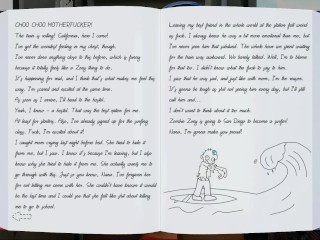 CHOO CHOO MOTHERFUCKER!
The train is rolling! California, here I come!
I've got the weirdest feeling in my chest, though.
I've never done anything close to this before, which is funny
because it totally feels like a Zoey thing to do.
It's happening for real, and I think that's what makes me feel this
way. I'm scared and excited at the same time.
As soon as I arrive, I'll head to the hostel.
Yeah, I know - a hostel. That was the best option for me.
At least for starters. Also, I've already signed up for the surfing
class. Fuck, I'm excited about it!
I caught mom crying last night before bed. She tried to hide it
from me, but I saw. I know it's because I'm leaving, but I also
know why she tried to hide it from me. She actually wants me to
go through with this. Just so you know, Nana: I've forgiven her
for not letting me come with her. She couldn't have known it would
be the last time and I could see that she felt like shit about letting
me to go to school.
Leaving my best friend in the whole world at the station felt weird
as fuck. I always knew he was a bit more emotional than me, but
I've never seen him that subdued. The whole time we spent waiting
for the train was awkward. We barely talked. Well, I'm to blame
for that too. I didn't know what the fuck to say to him.
I saw that he was sad, and just like with mom, I'm the reason.
It's gonna be tough as shit not seeing him every day, but I'll still
call him and...
I don't want to think about it too much.
Zombie Zoey is going to San Diego to become a surfer!
Nana, I'm gonna make you proud!